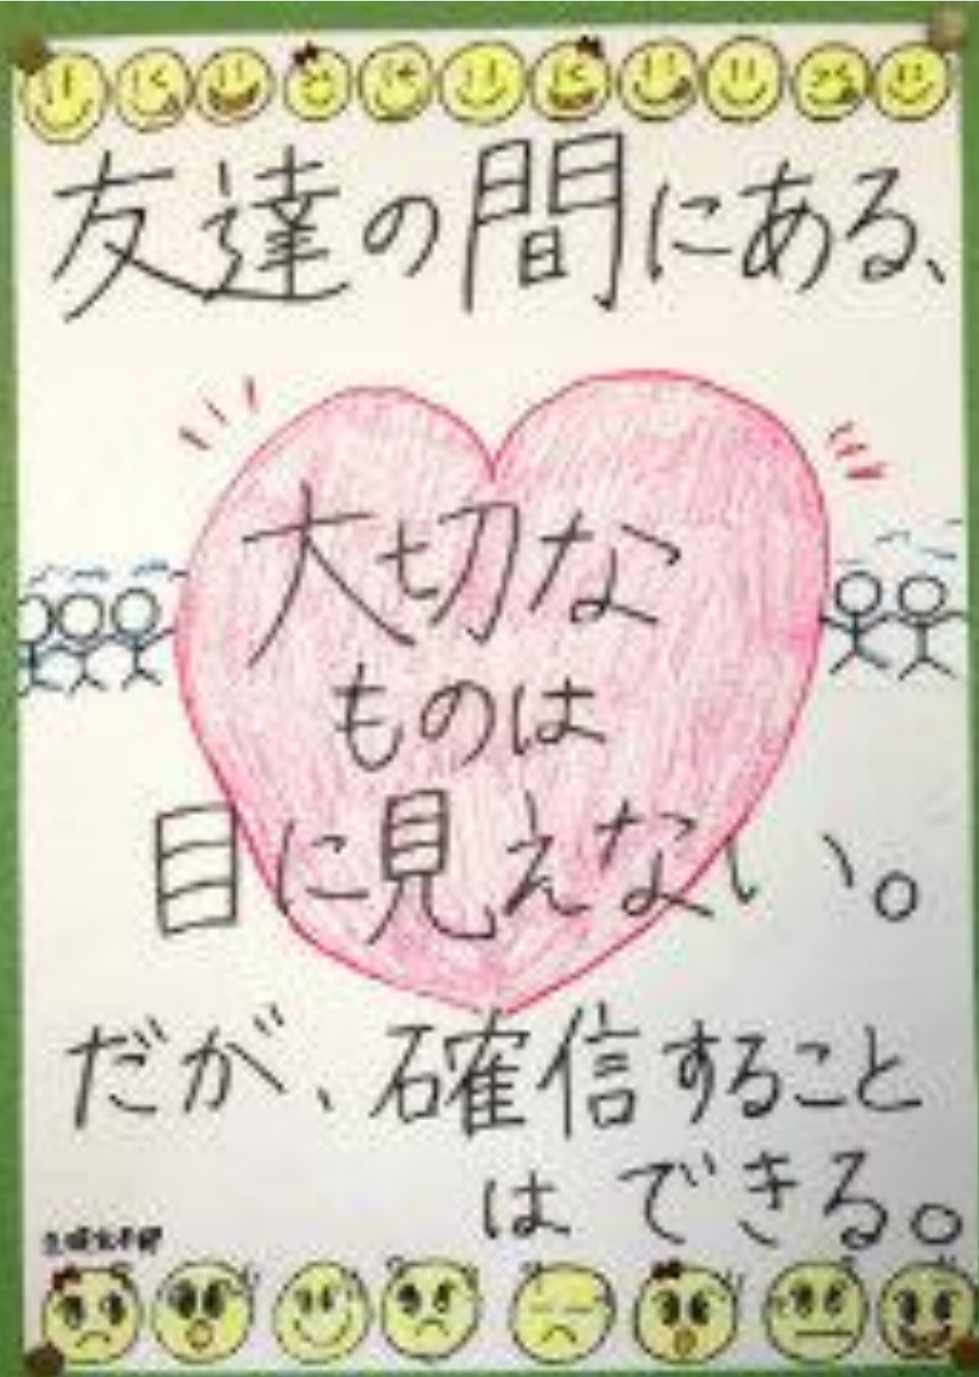 友達の間にある、
大切な
ものは
目に見えない。
だが、確信すること
はできる。